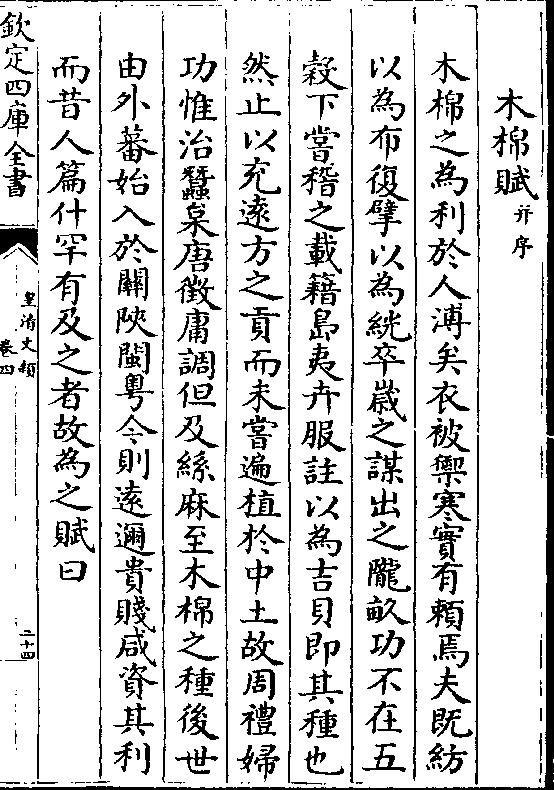 木棉賦并序
木棉之為利於人溥矣衣被禦寒實有賴焉夫既紡
以為布復擘以為絖卒嵗之謀出之隴畝功不在五
穀下嘗稽之載籍島夷卉服註以為吉貝即其種也
然止以充逺方之貢而未嘗遍植於中土故周禮婦
功惟治蠶枲唐徵庸調但及絲麻至木棉之種後世
由外蕃始入於關陜閩粤今則逺邇貴賤咸資其利
而昔人篇什罕有及之者故為之賦曰
欽定四庫全書
皇清文穎
卷四
二十四